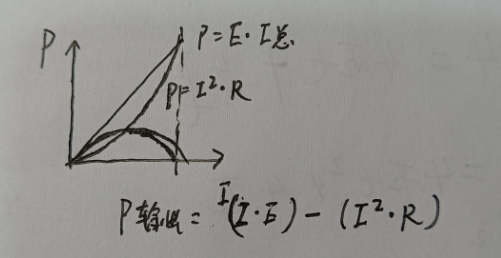 P
P = E · I总
P = I² · R
P输出 = I(I · E) - (I² · R)